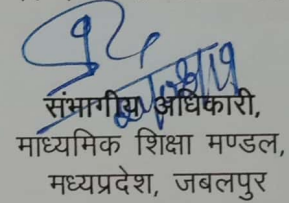 संभागीय अधिकारी,
माध्यमिक शिक्षा मण्डल,
मध्यप्रदेश, जबलपुर